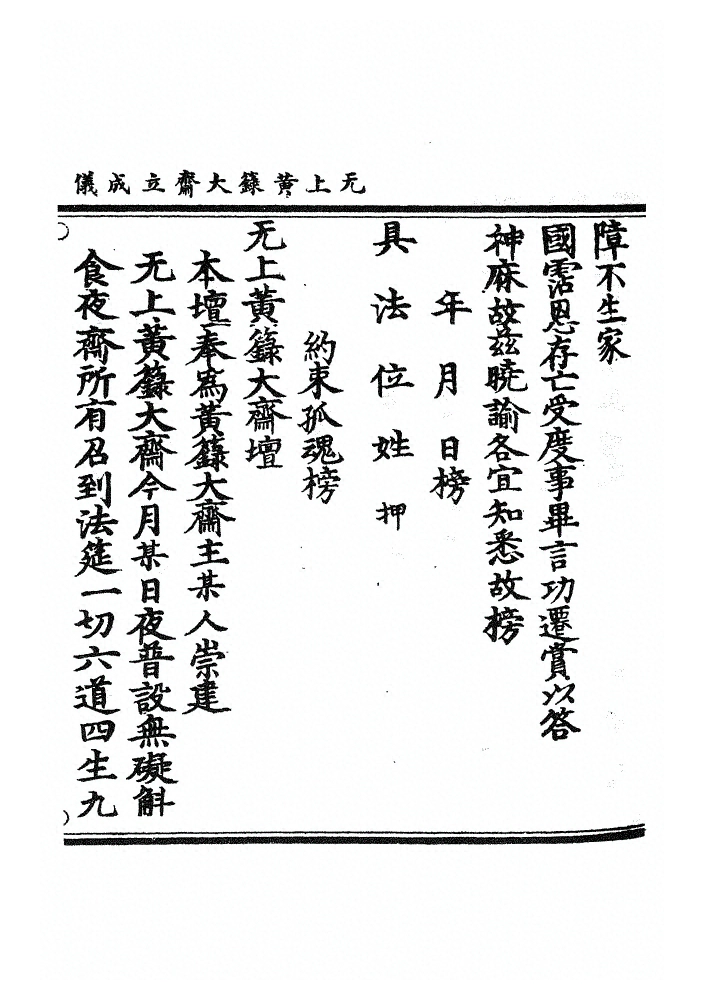 无上黄籙大齋立成儀
障不生家
國霑恩存亡受度事畢言功遷賞以答
神庥故茲曉諭各宜知悉故榜
年月日榜
具法位姓押
約束孤魂榜
无上黄籙大齋壇
本壇奉爲黄籙大齋主某人崇建
无上黄籙大齋今月某日夜普設無礙斛
食夜齋所有召到法筵一切六道四生九